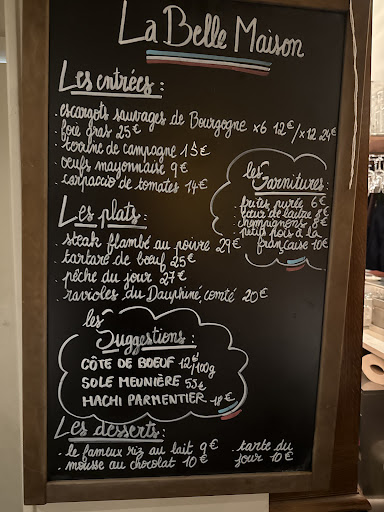 La Belle Maison
Les entrées :
. escargots sauvages de Bourgogne x6 12€/x12 24€
. foie gras 25€
. terrine de campagne 15€
. oeufs mayonnaise 9€
. carpaccio de tomates 14€
les Garnitures :
. frites purée 6€
. cœur de laitue 8€
. champignons 8€
. petits pois à la
française 10€
Les plats :
. steak flambé au poivre 29€
. tartare de bœuf 25€
. pêche du jour 27€
. ravioles du Dauphiné comté 20€
les Suggestions :
CÔTE DE BOEUF 12€/100g
SOLE MEUNIÈRE 55€
HACHI PARMENTIER 18€
Les desserts :
. le fameux riz au lait 9€
. mousse au chocolat 10€
. tarte du
jour 10€